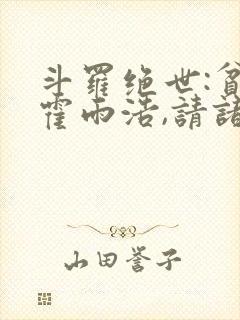 斗羅绝世:貧
霍雨浩,請諸
山田誉子